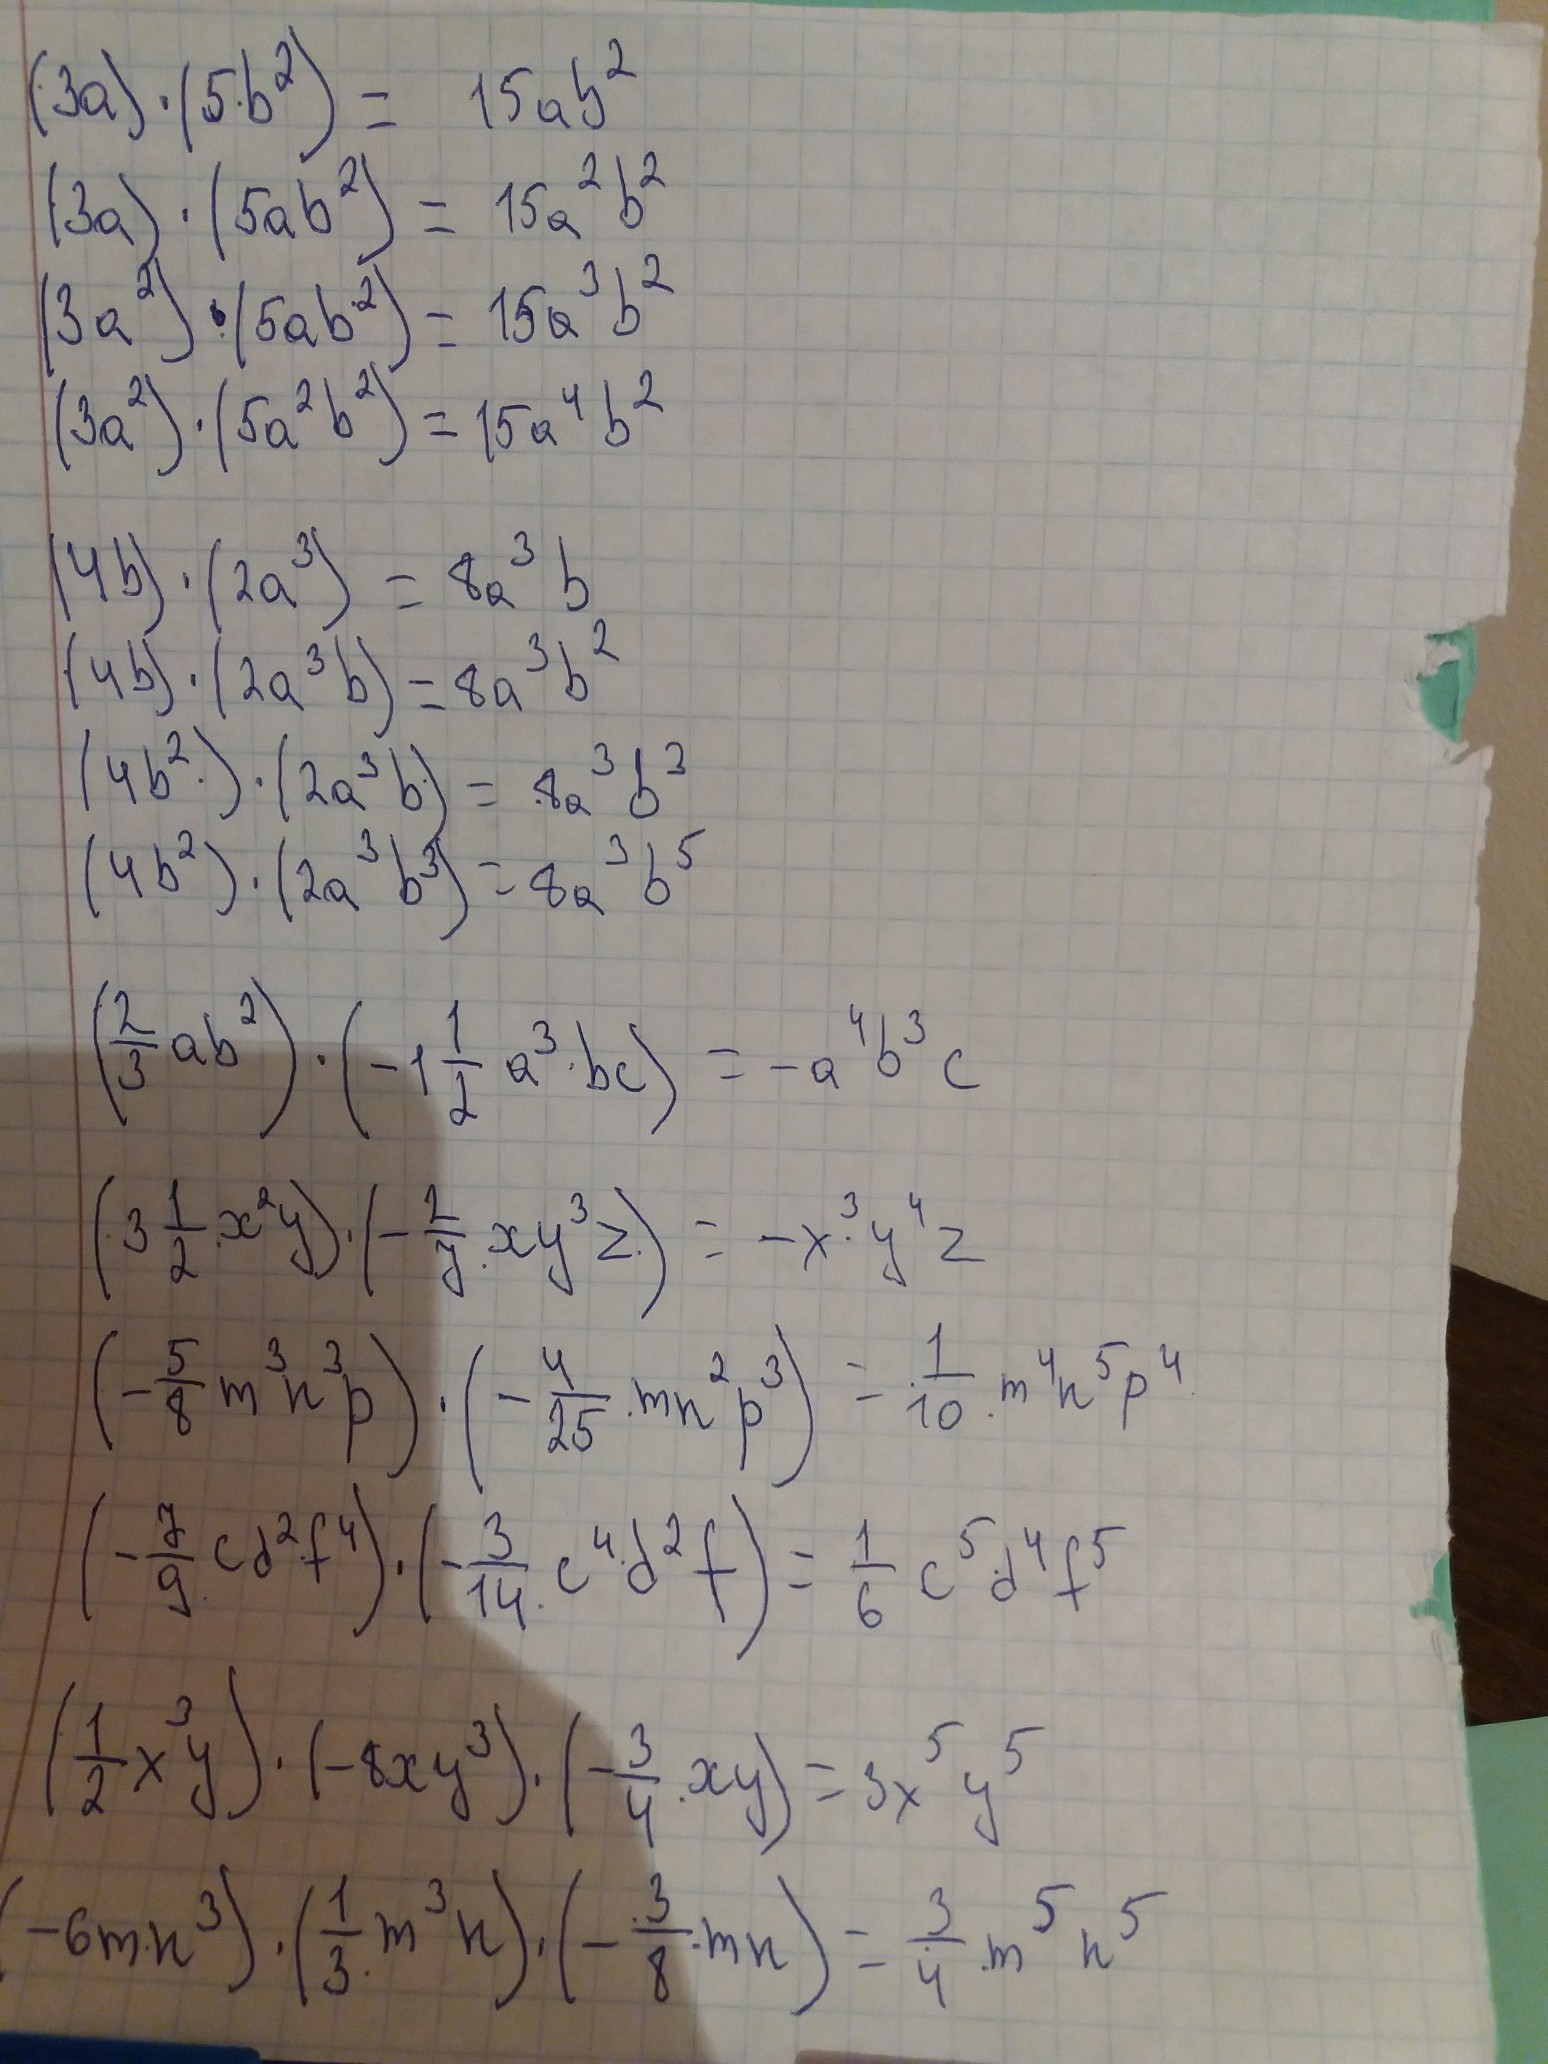 (3a)·(5b²) = 15ab²
(3a)·(5ab²) = 15a²b²
(3a²)·(5ab²) = 15a³b²
(3a²)·(5a²b²) = 15a⁴b²
(4b)·(2a³) = 8a³b
(4b)·(2a³b) = 8a³b²
(4b²)·(2a³b) = 8a³b³
(4b²)·(2a³b³) = 8a³b⁵
(2/3 ab²)·(-1 1/2 a³bc) = -a⁴b³c
(3 1/2 x²y)·(-2/7 xy³z) = -x³y⁴z
(-5/8 m³n³p)·(-4/25 mn²p³) = 1/10 m⁴n⁵p⁴
(-7/9 cd²f⁴)·(-3/14 c⁴d²f) = 1/6 c⁵d⁴f⁵
(1/2 x³y)·(-8xy³)·(-3/4 xy) = 3x⁵y⁵
(-6mn³)·(1/3 m³n)·(-3/8 mn) = 3/4 m⁵n⁵